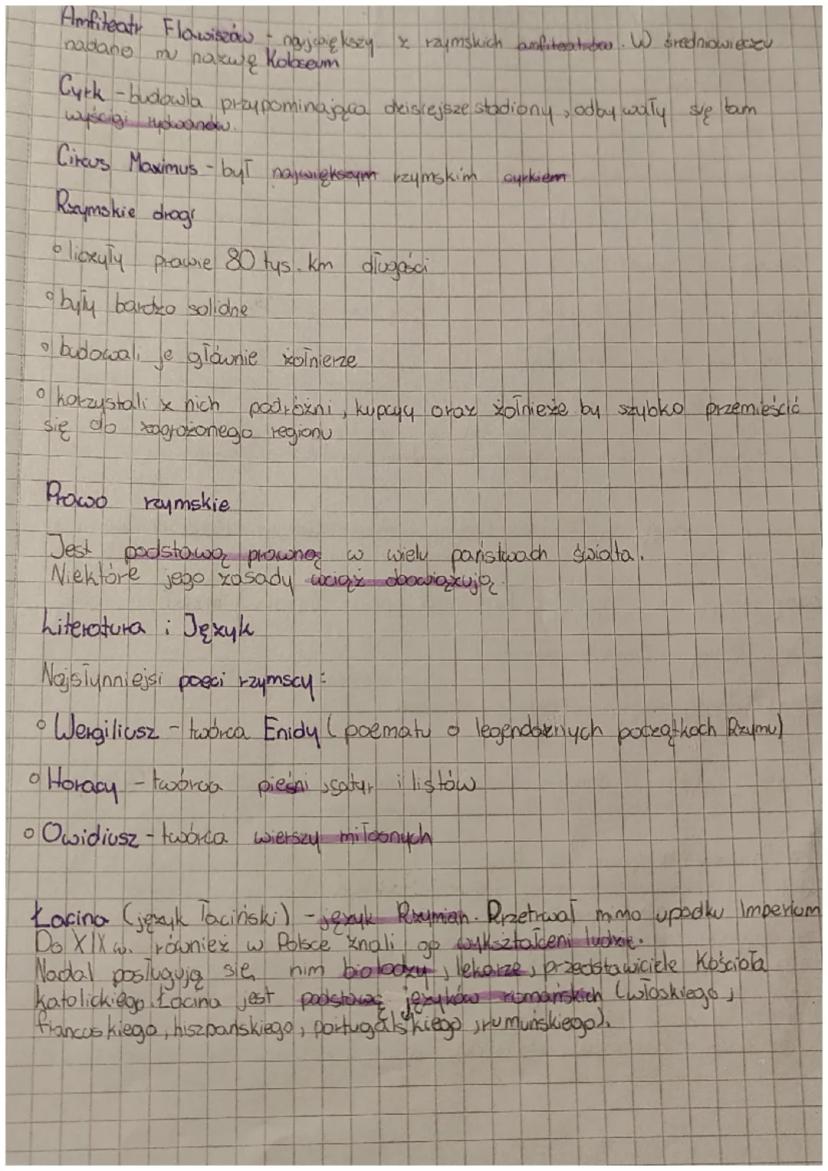 Amfiteatr Flawiszów - największy z rzymskich amfiteatrów. W średniowieczu
nadano mu nazwę Koloseum
Cyrk - budowla przypominająca dzisiejsze stadiony, odbywały się tam
wyścigi rydwanów.
Circus Maximus - był największym rzymskim cyrkiem
Rzymskie drogi
o liczyły prawie 80 tys. km długości
o były bardzo solidne
o budowali je głównie żołnierze
o korzystali z nich podróżni, kupcyy oraz żołnieże by szybko przemieścić
się do zagrożonego regionu
Prawo rzymskie
Jest podstawą prawną w wielu państwach świata.
Niektóre jego zasady wciąż obowiązują.
Literatura i Język
Najsłynniejsi poeci rzymscy:
o Wergiliusz - twórca Enidy (poematu o legendarnych początkach Rzymu)
o Horacy - twórca pieśni, satyr i listów
o Owidiusz - twórca wierszy miłosnych
Łacina (język łaciński) - język Rzymian. Przetrwał mimo upadku Imperium
Do XIX w. również w Polsce znali go wykształceni ludzie.
Nadal posługują się nim biolodzy, lekarze, przedstawiciele Kościoła
katolickiego. Łacina jest podstawą języków romańskich (włoskiego,
francuskiego, hiszpańskiego, portugalskiego, rumuńskiego).